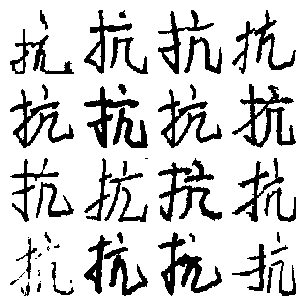 抗抗抗抗
抗抗抗抗
抗抗抗抗
抗抗抗抗